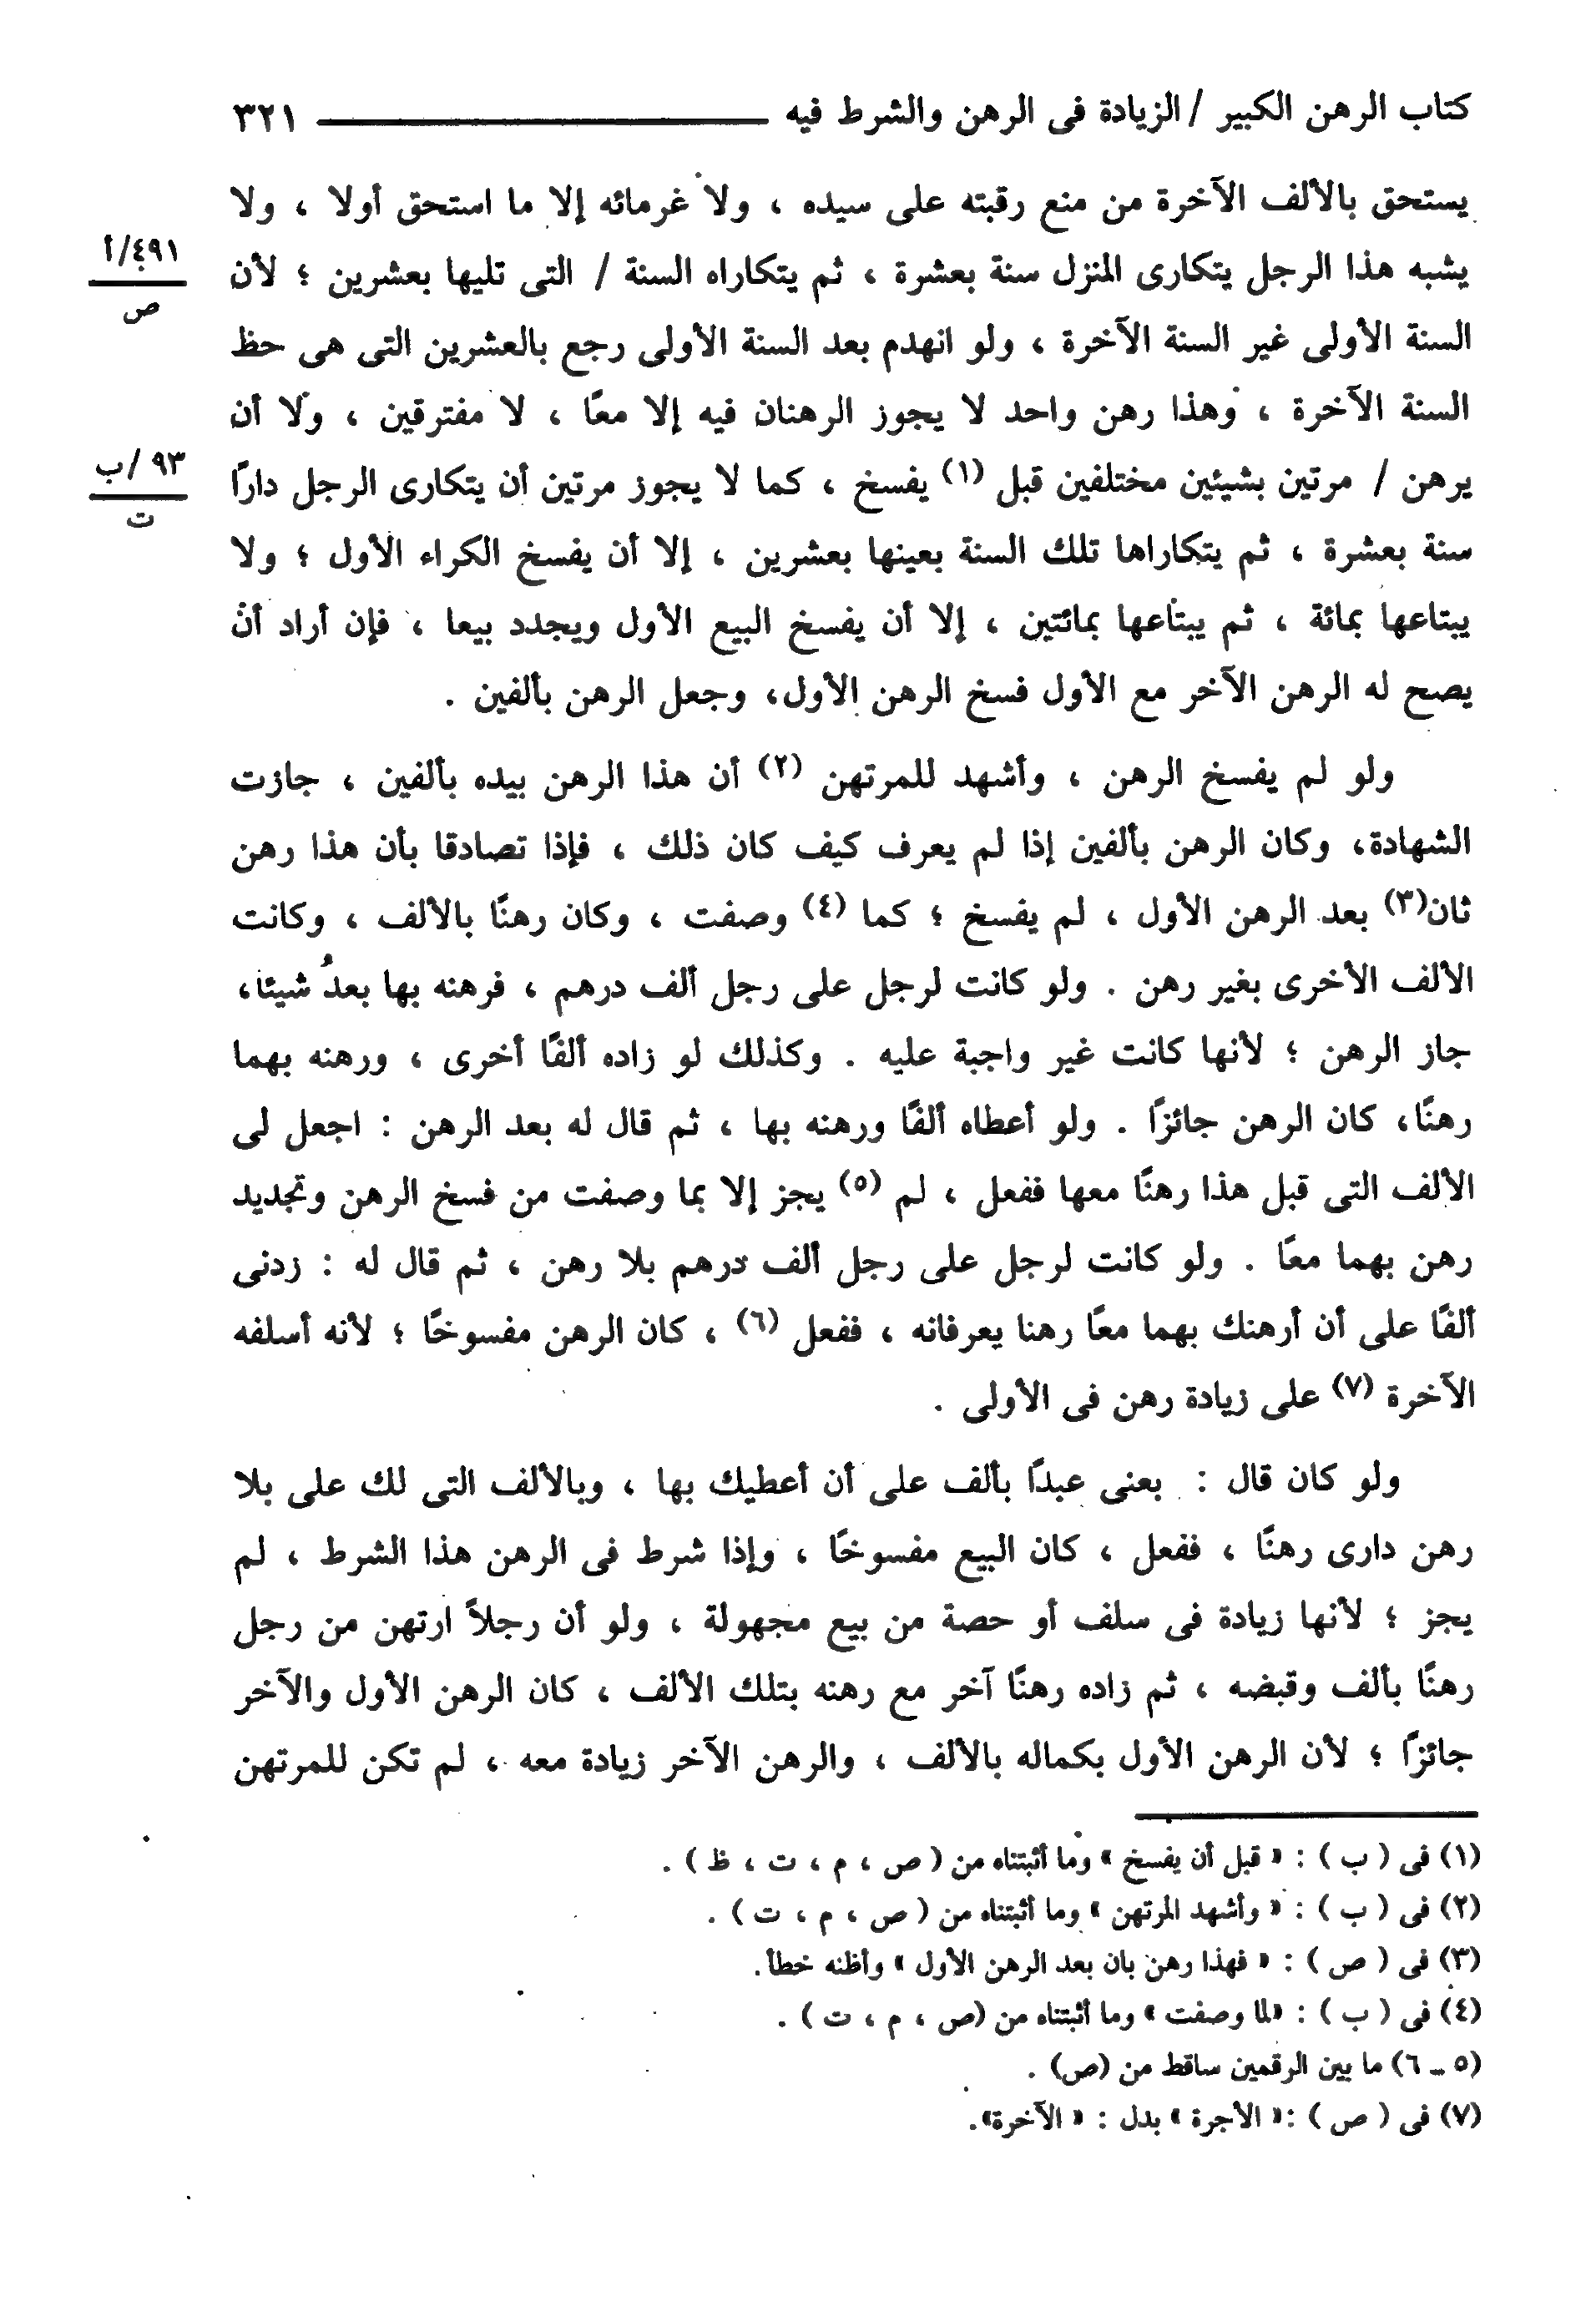 كتاب الرهن الكبير / الزيادة فى الرهن والشرط فيه ٣٢١
يستحق بالألف الآخرة من منع رقبته على سيده ، ولا غرمائه إلا ما استحق أولا ، ولا
يشبه هذا الرجل يتكارى المنزل سنة بعشرة ، ثم يتكاراه السنة / التى تليها بعشرين ؛ لأن
٤٩١/أ
ص
السنة الأولى غير السنة الآخرة ، ولو انهدم بعد السنة الأولى رجع بالعشرين التى هى حظ
السنة الآخرة ، وهذا رهن واحد لا يجوز الرهنان فيه إلا معًا ، لا مفترقين ، ولا أن
يرهن / مرتين بشيئين مختلفين قبل (١) يفسخ ، كما لا يجوز مرتين أن يتكارى الرجل دارًا
٩٣/ب
ت
سنة بعشرة ، ثم يتكاراها تلك السنة بعينها بعشرين ، إلا أن يفسخ الكراء الأول ؛ ولا
يبتاعها بمائة ، ثم يبتاعها بمائتين ، إلا أن يفسخ البيع الأول ويجدد بيعا ، فإن أراد أن
يصح له الرهن الآخر مع الأول فسخ الرهن الأول، وجعل الرهن بألفين .
ولو لم يفسخ الرهن ، وأشهد للمرتهن (٢) أن هذا الرهن بيده بألفين ، جازت
الشهادة، وكان الرهن بألفين إذا لم يعرف كيف كان ذلك ، فإذا تصادقا بأن هذا رهن
ثان(٣) بعد الرهن الأول ، لم يفسخ ؛ كما (٤) وصفت ، وكان رهنًا بالألف ، وكانت
الألف الأخرى بغير رهن . ولو كانت لرجل على رجل ألف درهم ، فرهنه بها بعدُ شيئا،
جاز الرهن ؛ لأنها كانت غير واجبة عليه . وكذلك لو زاده ألفًا أخرى ، ورهنه بهما
رهنًا، كان الرهن جائزًا . ولو أعطاه ألفًا ورهنه بها ، ثم قال له بعد الرهن : اجعل لى
الألف التى قبل هذا رهنًا معها ففعل ، لم (٥) يجز إلا بما وصفت من فسخ الرهن وتجديد
رهن بهما معًا . ولو كانت لرجل على رجل ألف درهم بلا رهن ، ثم قال له : زدنى
ألفًا على أن أرهنك بهما معًا رهنا يعرفانه ، ففعل (٦) ، كان الرهن مفسوخًا ؛ لأنه أسلفه
الآخرة (٧) على زيادة رهن فى الأولى .
ولو كان قال : بعنى عبدًا بألف على أن أعطيك بها ، وبالألف التى لك على بلا
رهن دارى رهنًا ، ففعل ، كان البيع مفسوخًا ، وإذا شرط فى الرهن هذا الشرط ، لم
يجز ؛ لأنها زيادة فى سلف أو حصة من بيع مجهولة ، ولو أن رجلاً ارتهن من رجل
رهنًا بألف وقبضه ، ثم زاده رهنًا آخر مع رهنه بتلك الألف ، كان الرهن الأول والآخر
جائزًا ؛ لأن الرهن الأول بكماله بالألف ، والرهن الآخر زيادة معه ، لم تكن للمرتهن
(١) فى ( ب ) : « قبل أن يفسخ » وما أثبتناه من ( ص ، م ، ت ، ظ ) .
(٢) فى ( ب ) : « وأشهد المرتهن » وما أثبتناه من ( ص ، م ، ت ) .
(٣) فى ( ص ) : « فهذا رهن بان بعد الرهن الأول » وأظنه خطأ.
(٤) فى ( ب ) : «لما وصفت » وما أثبتناه من (ص ، م ، ت ) .
(٥ ــ ٦) ما بين الرقمين ساقط من (ص) .
(٧) فى ( ص ) :« الأجرة » بدل : « الآخرة».